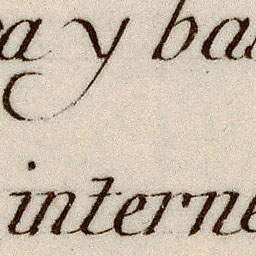 a y ba
interne